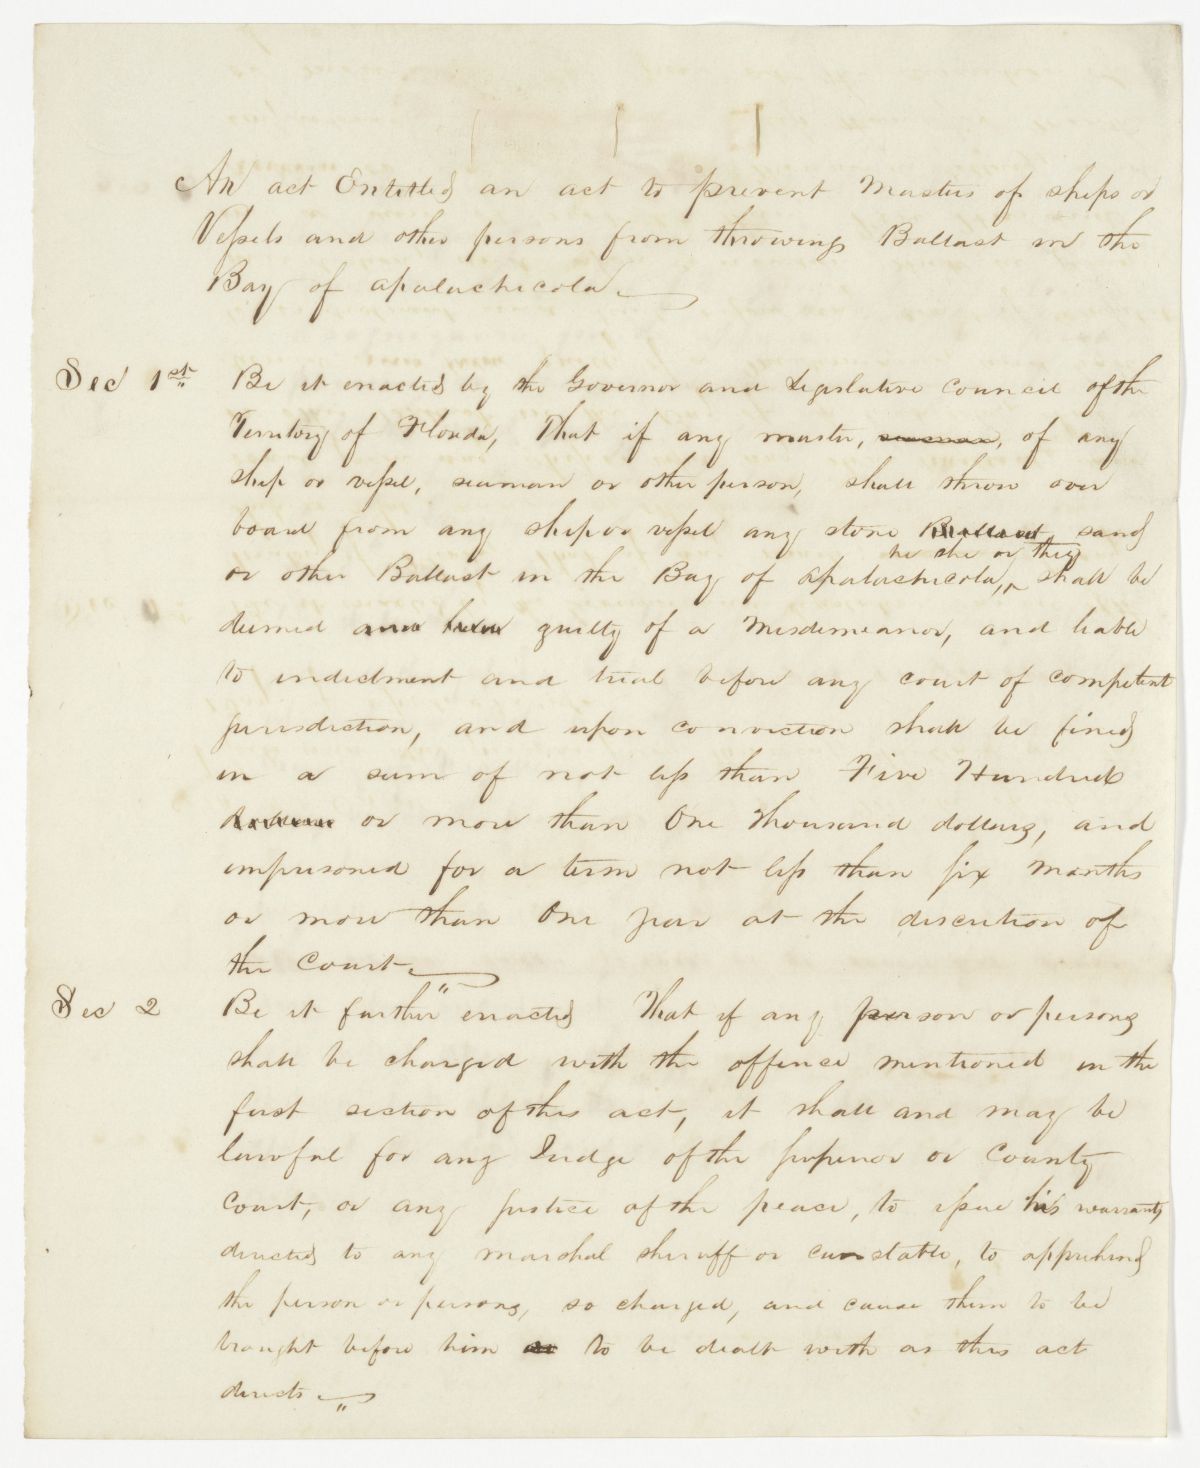 An act Entitled an act to prevent Masters of ships or
Vessels and other persons from throwing Ballast in the
Bay of apalachicola.
Sec 1st Be it enacted by the Governor and Legislative Council of the
Territory of Florida, That if any master, seaman, of any
ship or vessel, seaman or other person, shall throw over
board from any ship or vessel any stone Ballast, sand
he she or they
or other Ballast in the Bay of apalachicola, shall be
deemed guilty of a Misdemeanor, and liable
to indictment and trial before any court of competent
jurisdiction, and upon conviction shall be fined
in a sum of not less than Five Hundred
or more than One thousand dollars, and
imprisoned for a term not less than six months
or more than One year at the discretion of
the Court.
Sec 2 Be it further enacted That if any person or persons
shall be charged with the offence mentioned in the
first section of this act, it shall and may be
lawful for any Judge of the superior or County
Court, or any justice of the peace, to issue his warrant,
directed to any marshal sheriff or constable, to apprehend
the person or persons, so charged, and cause them to be
brought before him to be dealt with as this act
directs